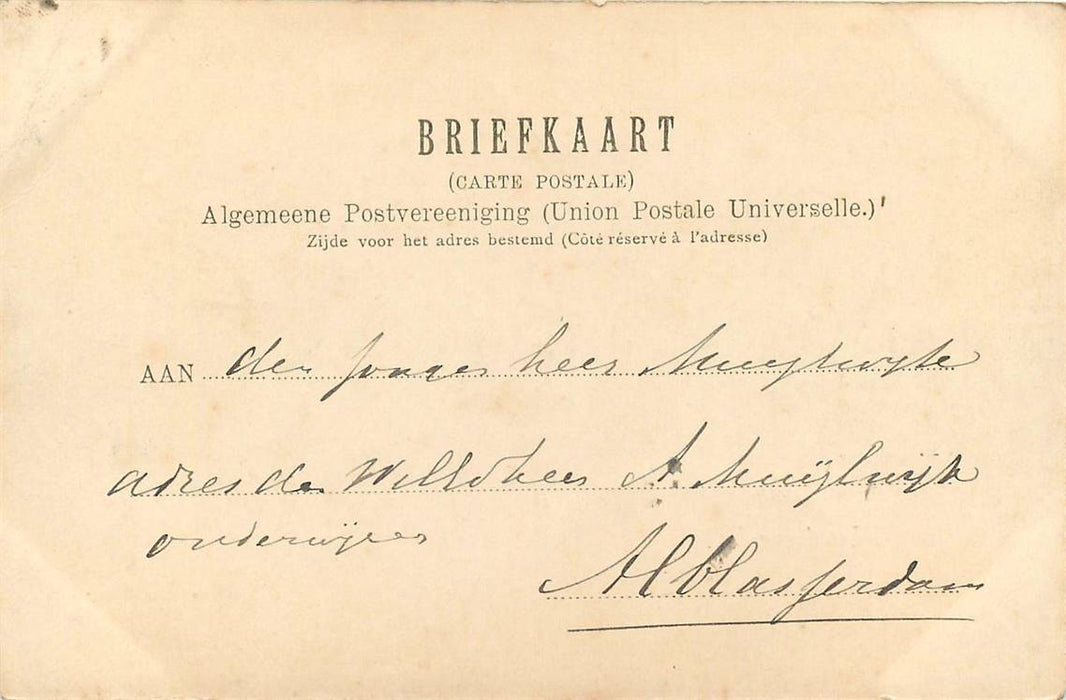 BRIEFKAART
(CARTE POSTALE)
Algemeene Postvereeniging (Union Postale Universelle.)
Zijde voor het adres bestemd (Côté réservé à l'adresse)
AAN den jonger heer Muijlwijk
adres den WelEdheer A. Muijlwijk
onderwijzer
Alblasserdam